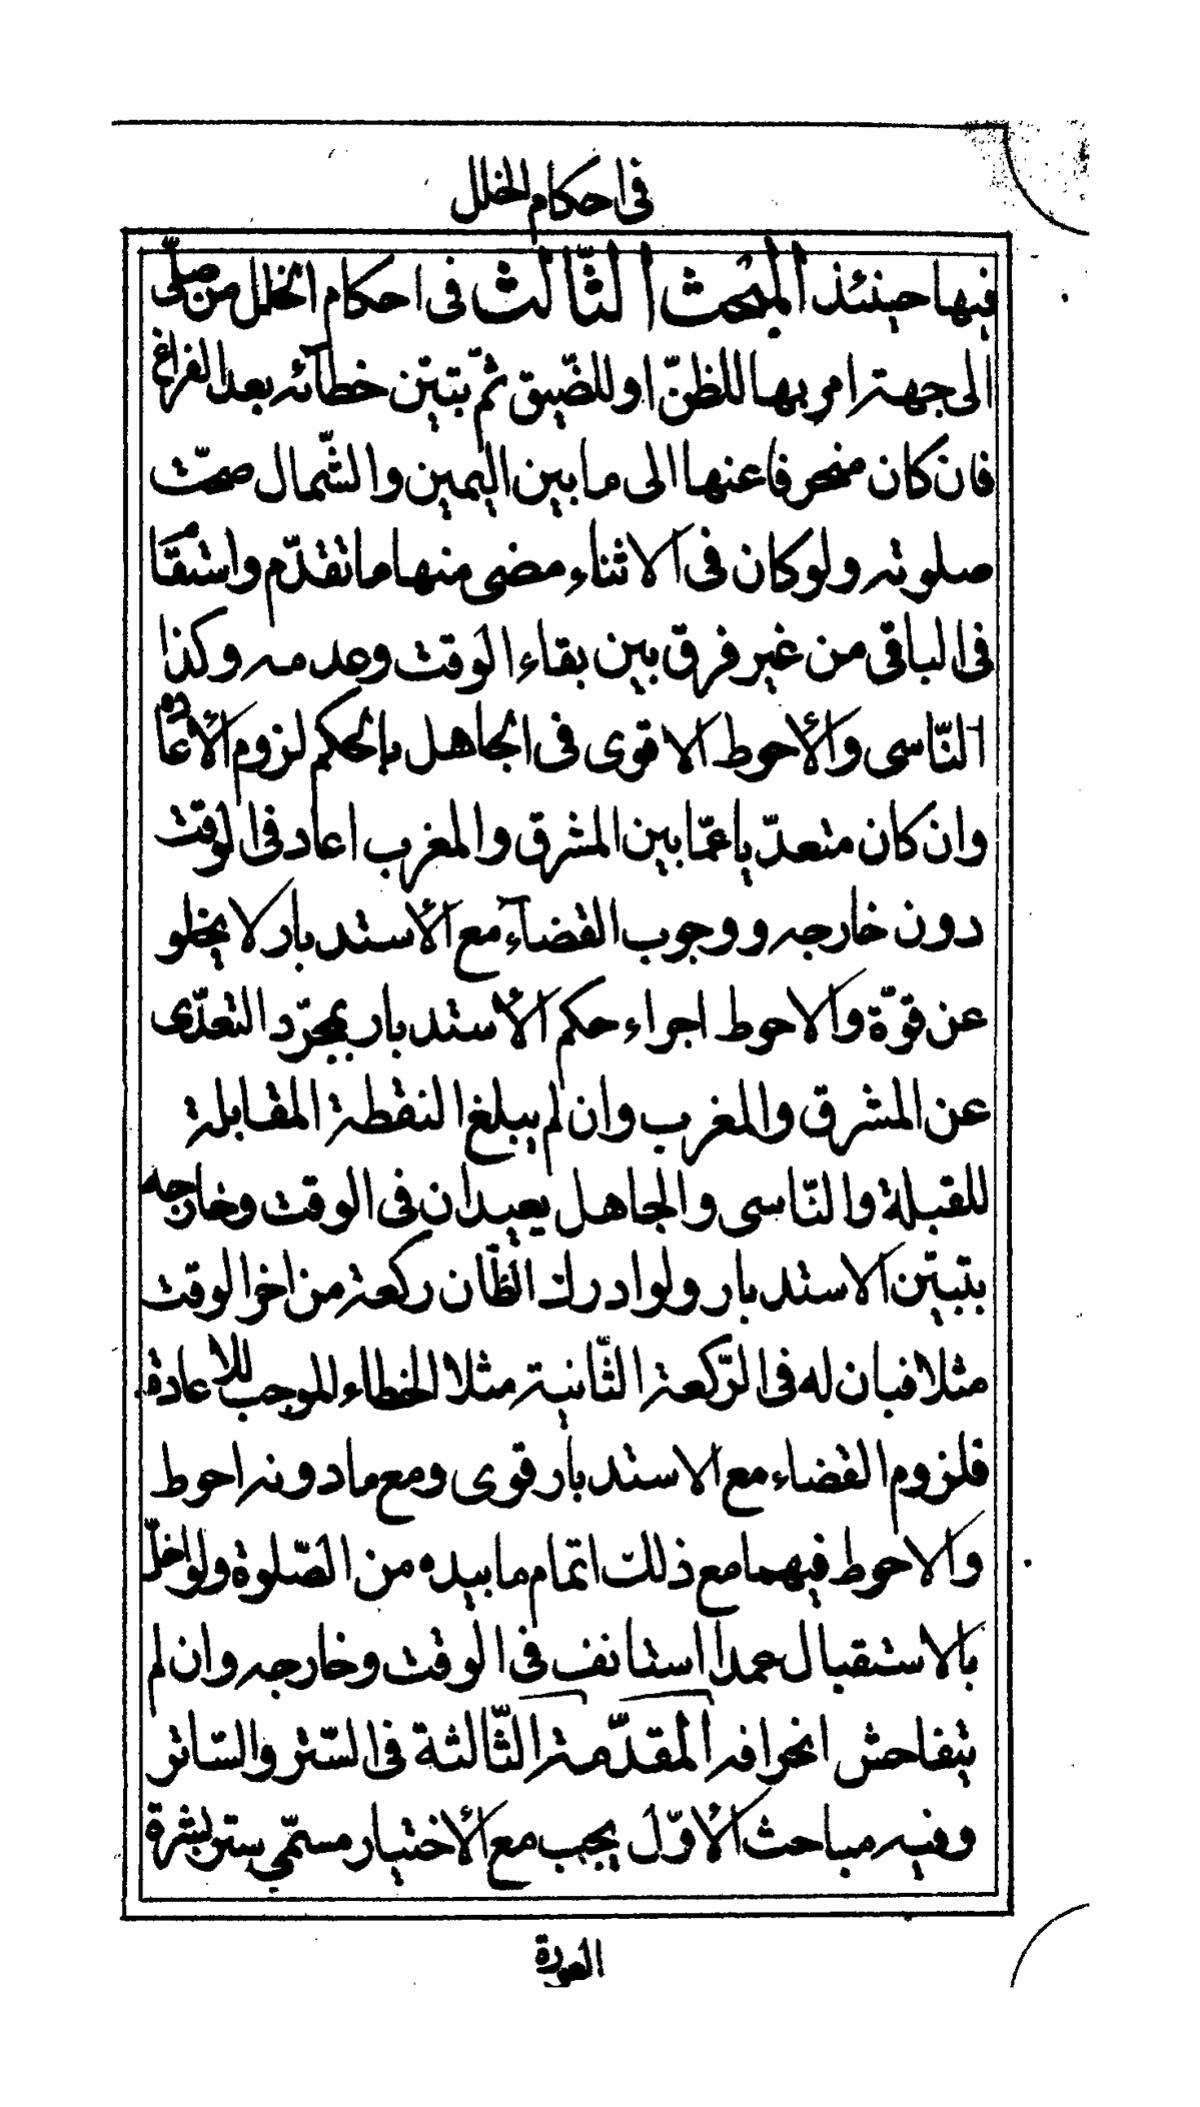 فى احكام الخلل
فيها حينئذ المبحث الثّالث فى احكام الخلل من صلّى
الى جهة امر بها للظنّ او للضّيق ثمّ تبيّن خطآئه بعد الفراغ
فان كان منحرفا عنها الى ما بين اليمين والشّمال صحّت
صلوته ولو كان فى الاثناء مضى منها ما تقدّم واستقا
فى الباقى من غير فرق بين بقاء الوقت وعدمه وكذا
النّاسى والأحوط الاقوى فى الجاهل بالحكم لزوم الأعادة
وان كان متعدّيا عمّا بين المشرق والمغرب اعاد فى الوقت
دون خارجه ووجوب القضآء مع الأستدبار لا يخلو
عن قوّة والاحوط اجراء حكم الأستدبار بمجرّد التعدّى
عن المشرق والمغرب وان لم يبلغ النقطة المقابلة
للقبلة والنّاسى والجاهل يعيدان فى الوقت وخارجه
بتبيّن الاستدبار ولو ادرك الظّان ركعة من اخر الوقت
مثلا فبان له فى الرّكعة الثّانية مثلا الخطاء الموجب للاعادة
فلزوم القضاء مع الاستدبار قوى ومع ما دونه احوط
والاحوط فيهما مع ذلك اتمام ما بيده من الصّلوة ولو اخلّ
بالاستقبال عمدا استانف فى الوقت وخارجه وان لم
يتفاحش انحرافه المقدّمة الثّالثة فى السّتر والسّاتر
وفيه مباحث الأوّل يجب مع الأختيار مسمّى ستر بشرة
العورة